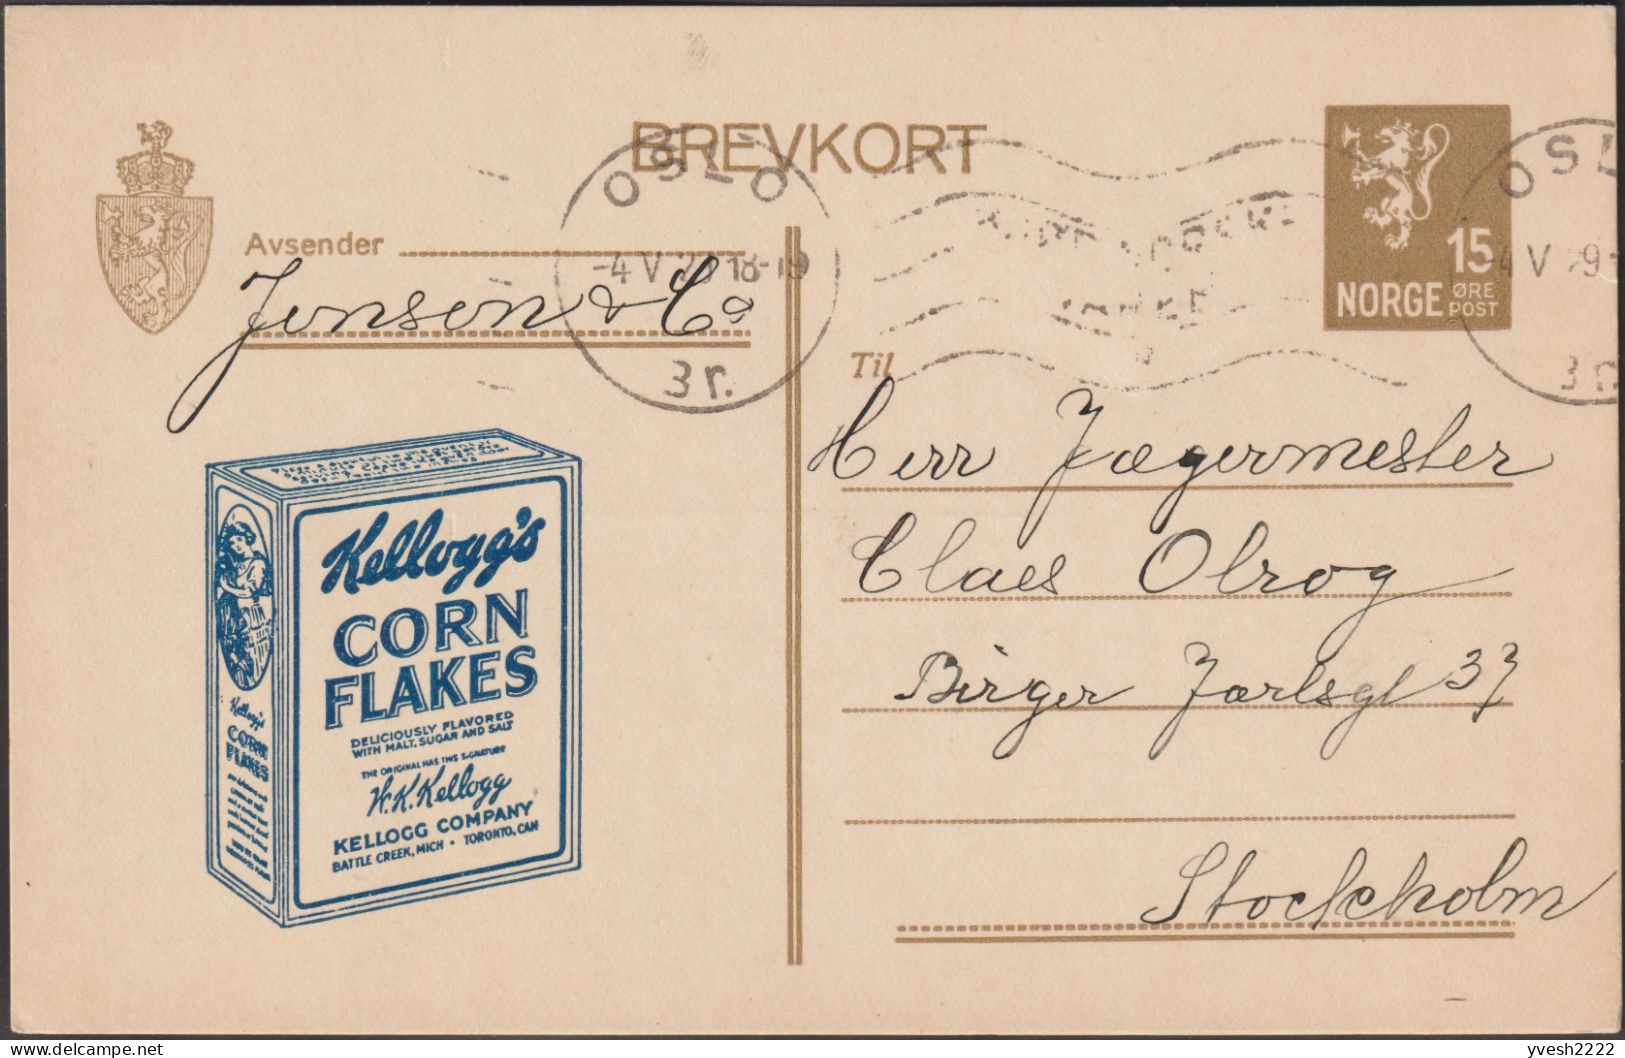 BREVKORT
OSLO
-4 V 29 18-19
3 r.
OSL
-4 V 29
3 r.
15
NORGE ØRE POST
Avsender
Jensen & Co
Til
Herr Jægermester
Claes Olrog
Birger Jarlsgt 37
Stockholm
Kellogg's
CORN
FLAKES
DELICIOUSLY FLAVORED
WITH MALT, SUGAR AND SALT
THE ORIGINAL HAS THIS SIGNATURE
W.K.Kellogg
KELLOGG COMPANY
BATTLE CREEK, MICH • TORONTO, CAN
Kellogg's
CORN
FLAKES
yvesh2222